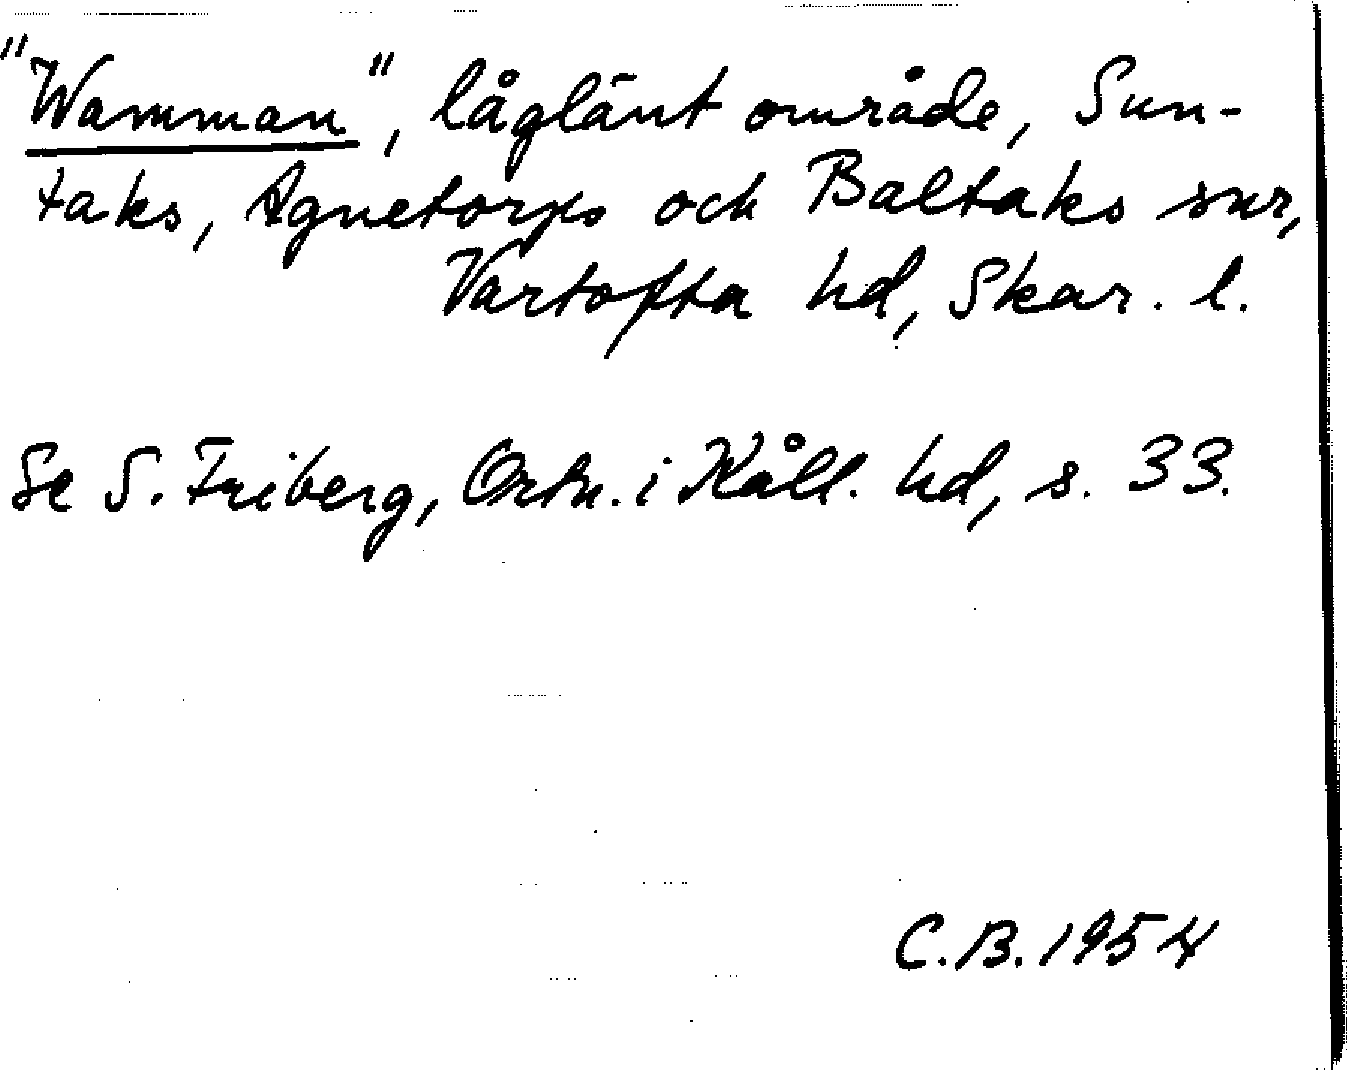 "Wamman", låglänt område, Sun-
taks, Agnetorps och Baltaks snr,
Vartofta hd, Skar. l.
Se S. Friberg, Ortn. i Kåll. hd, s. 33.
C.B. 1954